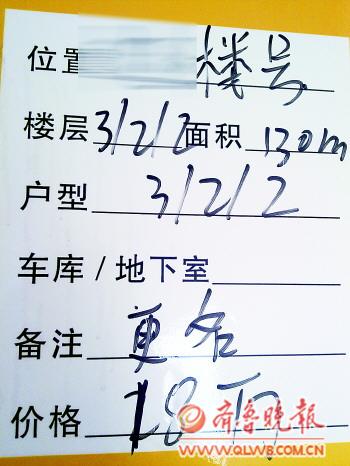 位置 楼号
楼层 3/2/2 面积 130m
户型 3/2/2
车库/地下室
备注 更名
价格 18万
齐鲁晚报
WWW.QLWB.COM.CN